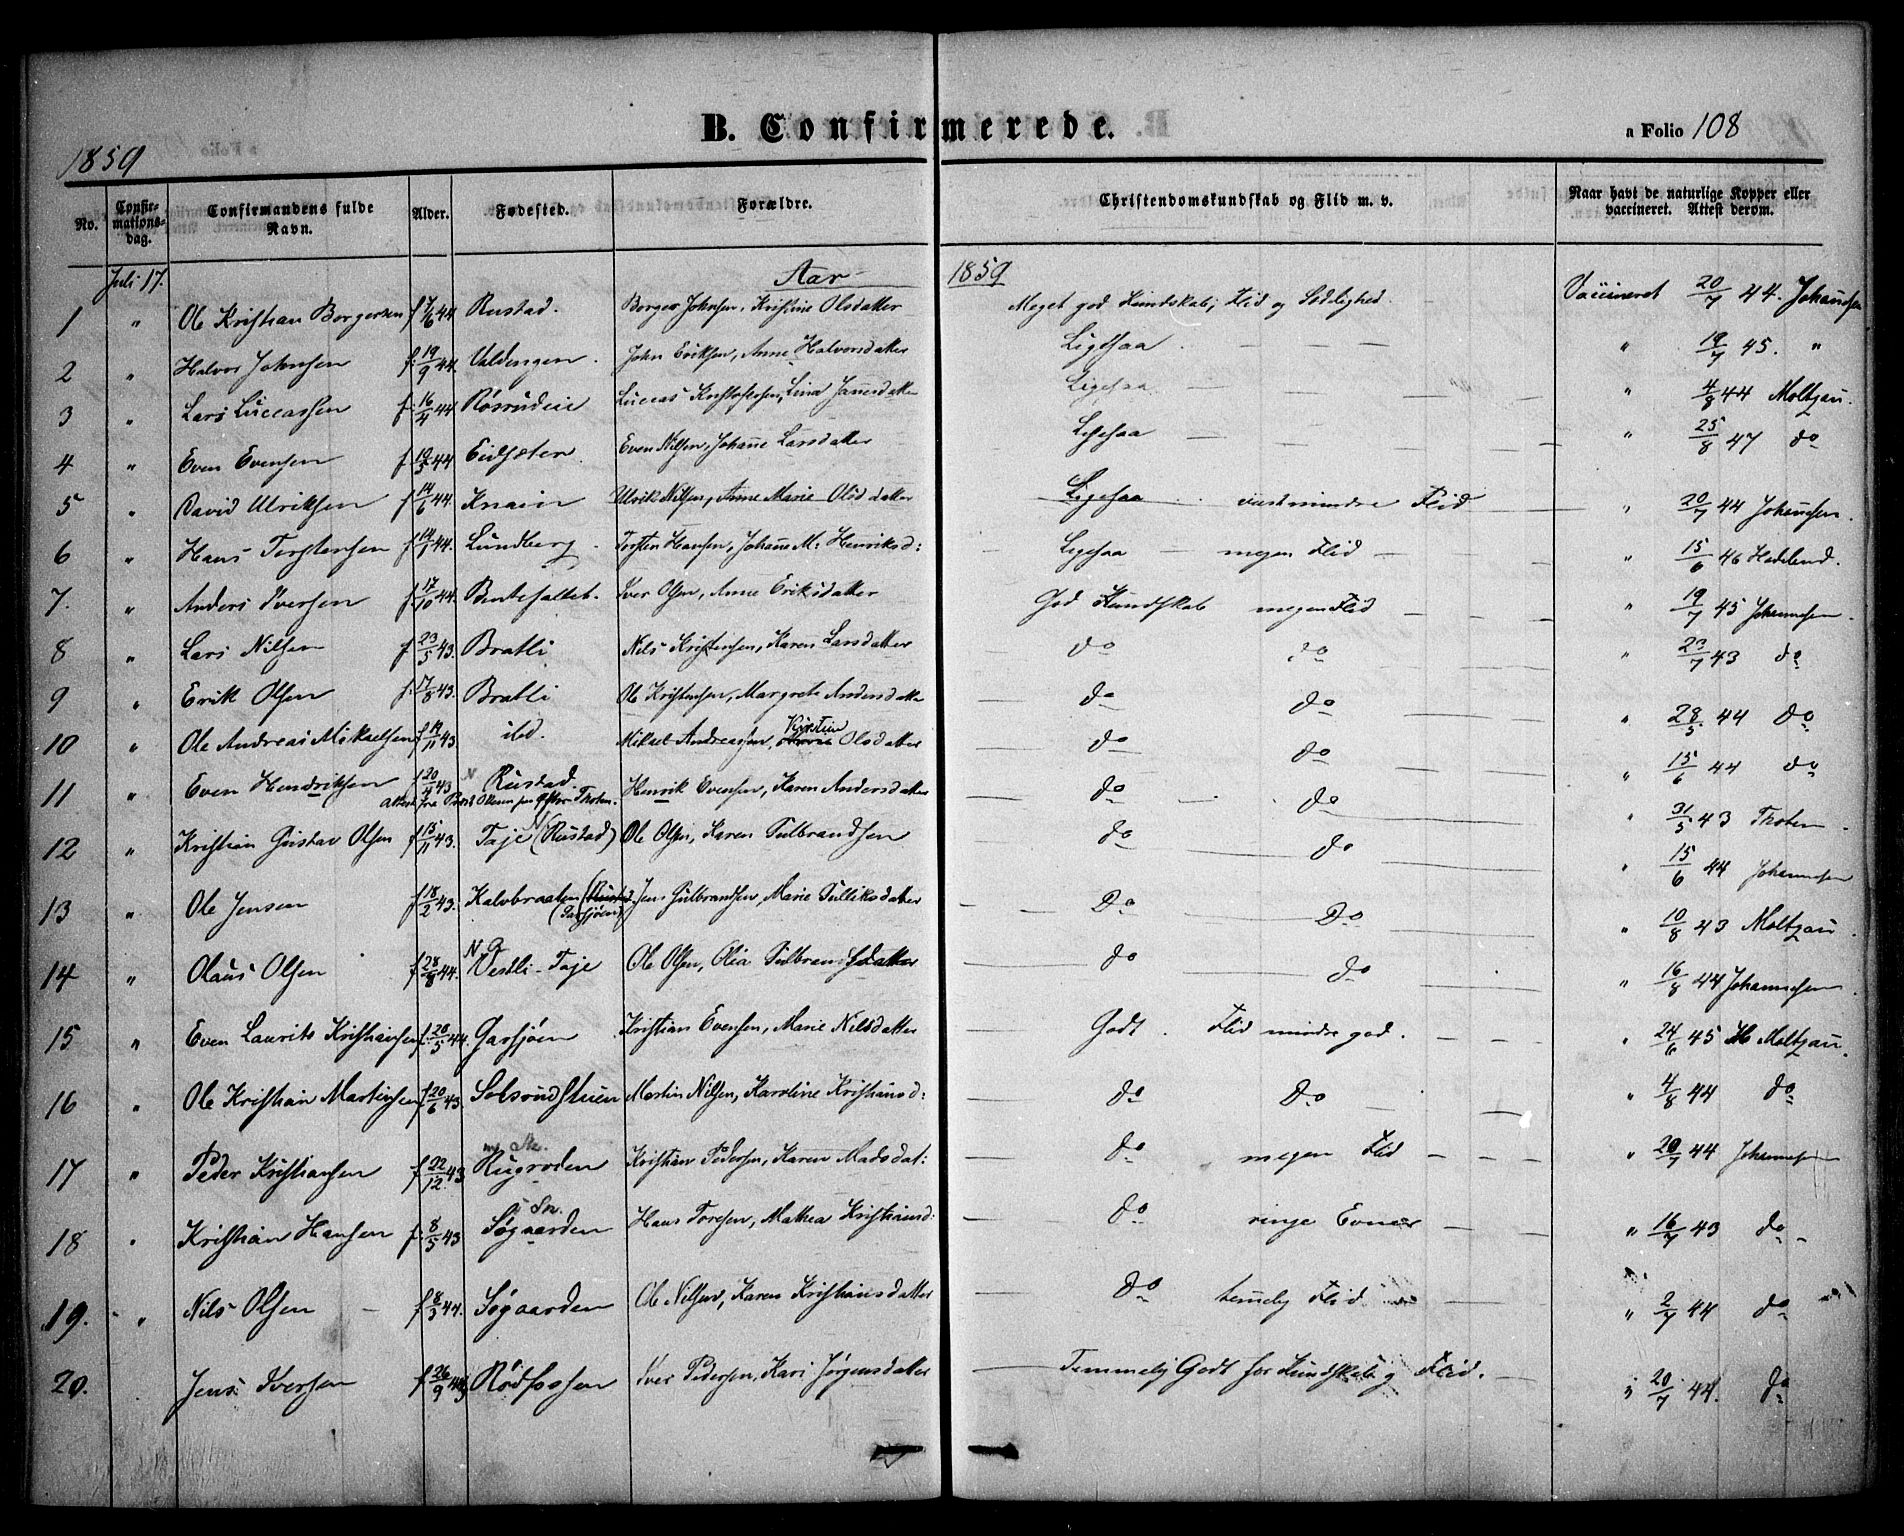 B. Confirmerede.
a Folio 108
1859
No. Confirmationsdag. Confirmandens fulde Navn. Alder. Fødested. Forældre. Christendomskundskab og Flid m. v. Naar havt de naturlige Kopper eller vaccineret. Attest derom.
Juli 17. Aar 1859
1 " Ole Kristian Borgersen f 7/6 44 Rustad. Borger Johnsen, Kristine Olsdatter Meget god Kundskab, Flid og Sædlighed. Vaccineret 20/7 44. Johannesen
2 " Halvor Johnsen f. 19/9 44. Valdengen. John Eriksen, Anne Halvorsdatter Ligesaa " 19/7 45. "
3 " Lars Luccassen f. 16/4 44 Røsrudeie Luccas Kristofersen, Lina Jansdatter Ligesaa " 4/8 44 Moltzau.
4 " Even Evensen f. 19/3 44 Eidsæter Even Nilsen, Johanne Larsdatter Ligesaa " 25/8 47 do
5 " David Ulriksen f 14/6 44. Knain Ulrik Nilsen, Anne Marie Olsdatter Ligesaa mindre Flid " 20/7 44 Johannesen.
6 " Hans Torstensen f 14/1 44. Lundberg. Torsten Hansen, Johanne M: Henriksd: Ligesaa megen Flid " 15/6 46 Hadeland.
7. " Anders Iversen f. 17/10 44. Bentefaltet. Iver Olsen, Anne Eriksdatter God Kundskab megen Flid " 19/7 45 Johannesen.
8 " Lars Nilsen f 23/5 43. Bratli Nils Kristensen, Karen Larsdatter do do " 23/7 43 do
9 " Erik Olsen f. 17/8 43. Bratli Ole Kristensen, Margrete Andersdatter do do " 28/5 44 do
10 " Ole Andreas Mikaelsen f 19/11 43 ibd. Mikael Andreassen, Kirstin Olsdatter do do " 15/6 44 do
11 " Even Hendriksen f 20/4 43 N Rustad. Henrik Evensen, Karen Andersdatter do do " 31/5 43 Thoten
Attest fra Præst Thoten.
12 " Kristian Gustav Olsen f 15/11 43. Taje (Rustad) Ole Olsen, Karen Gulbrandsen do do " 15/6 44 Johannesen
13 " Ole Jensen f 18/2 43. Kalvbraaten (Rustad (Garsjøen) Jens Gulbrandsen, Marie Gulliksdatter Do Do " 10/8 43 Moltzau
14 " Olaus Olsen f 28/8 44. Vestli-Taje Ole Olsen, Olia Gulbrandsdatter do do " 16/8 44 Johannesen
15 " Even Laurits Kristiansen f. 20/5 44. Garsjøen Kristian Evensen, Marie Nilsdatter Godt. Flid mindre god. " 24/6 45 M Moltzau.
16 " Ole Kristian Martinsen f 20/6 43. Solsrudstuen Martin Nilsen, Karoline Kristiansd: do Do " 4/8 44 do
17 " Peder Kristiansen f 22/12 43 Rugroden Kristian Pedersen, Karen Madsdat: do megen Flid " 20/7 44 Johannesen
18 . Kristian Hansen f. 8/5 43 Søgaarden Hans Toresen, Mathea Kristiansd: do ringe Evner " 16/7 43 do
19. " Nils Olsen f 8/3 44. Søgaarden Ole Nilsen, Karen Kristiansdatter do temelig Flid " 2/7 44 do
20. Jens Iversen f 26/9 44 Rødfossen Iver Pedersen, Kari Jørgensdatter Temmelig Godt for Kundskab og Flid. " 20/7 44. do